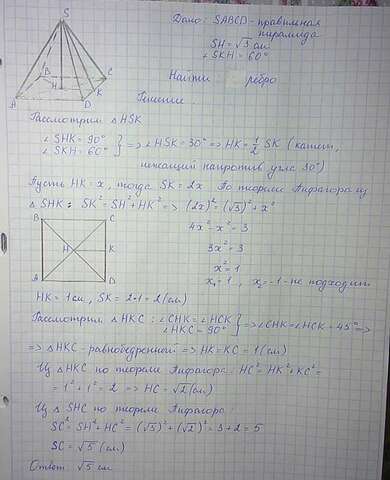 S
B
C
H
K
A
D
Дано: SABCD - правильная
пирамида
SH = √3 см
∠SKH = 60°
Найти: ребро
Решение
Рассмотрим △HSK
∠SHK = 90°
∠SKH = 60° } => ∠HSK = 30° => HK = 1/2 SK (катет,
лежащий напротив угла 30°)
Пусть HK = x, тогда SK = 2x По теореме Пифагора из
△SHK: SK² = SH² + HK² => (2x)² = (√3)² + x²
4x² - x² = 3
3x² = 3
x² = 1
x₁ = 1, x₂ = -1 - не подходит
B
C
H
K
A
D
HK = 1 см, SK = 2·1 = 2 (см)
Рассмотрим △HKC: ∠CHK = ∠HCK
∠HKC = 90° } => ∠CHK = ∠HCK = 45° =>
=> △HKC - равнобедренный => HK = KC = 1 (см)
Из △HKC по теореме Пифагора: HC² = HK² + KC² =
= 1² + 1² = 2 => HC = √2 (см)
Из △SHC по теореме Пифагора
SC² = SH² + HC² = (√3)² + (√2)² = 3 + 2 = 5
SC = √5 (см)
Ответ: √5 см